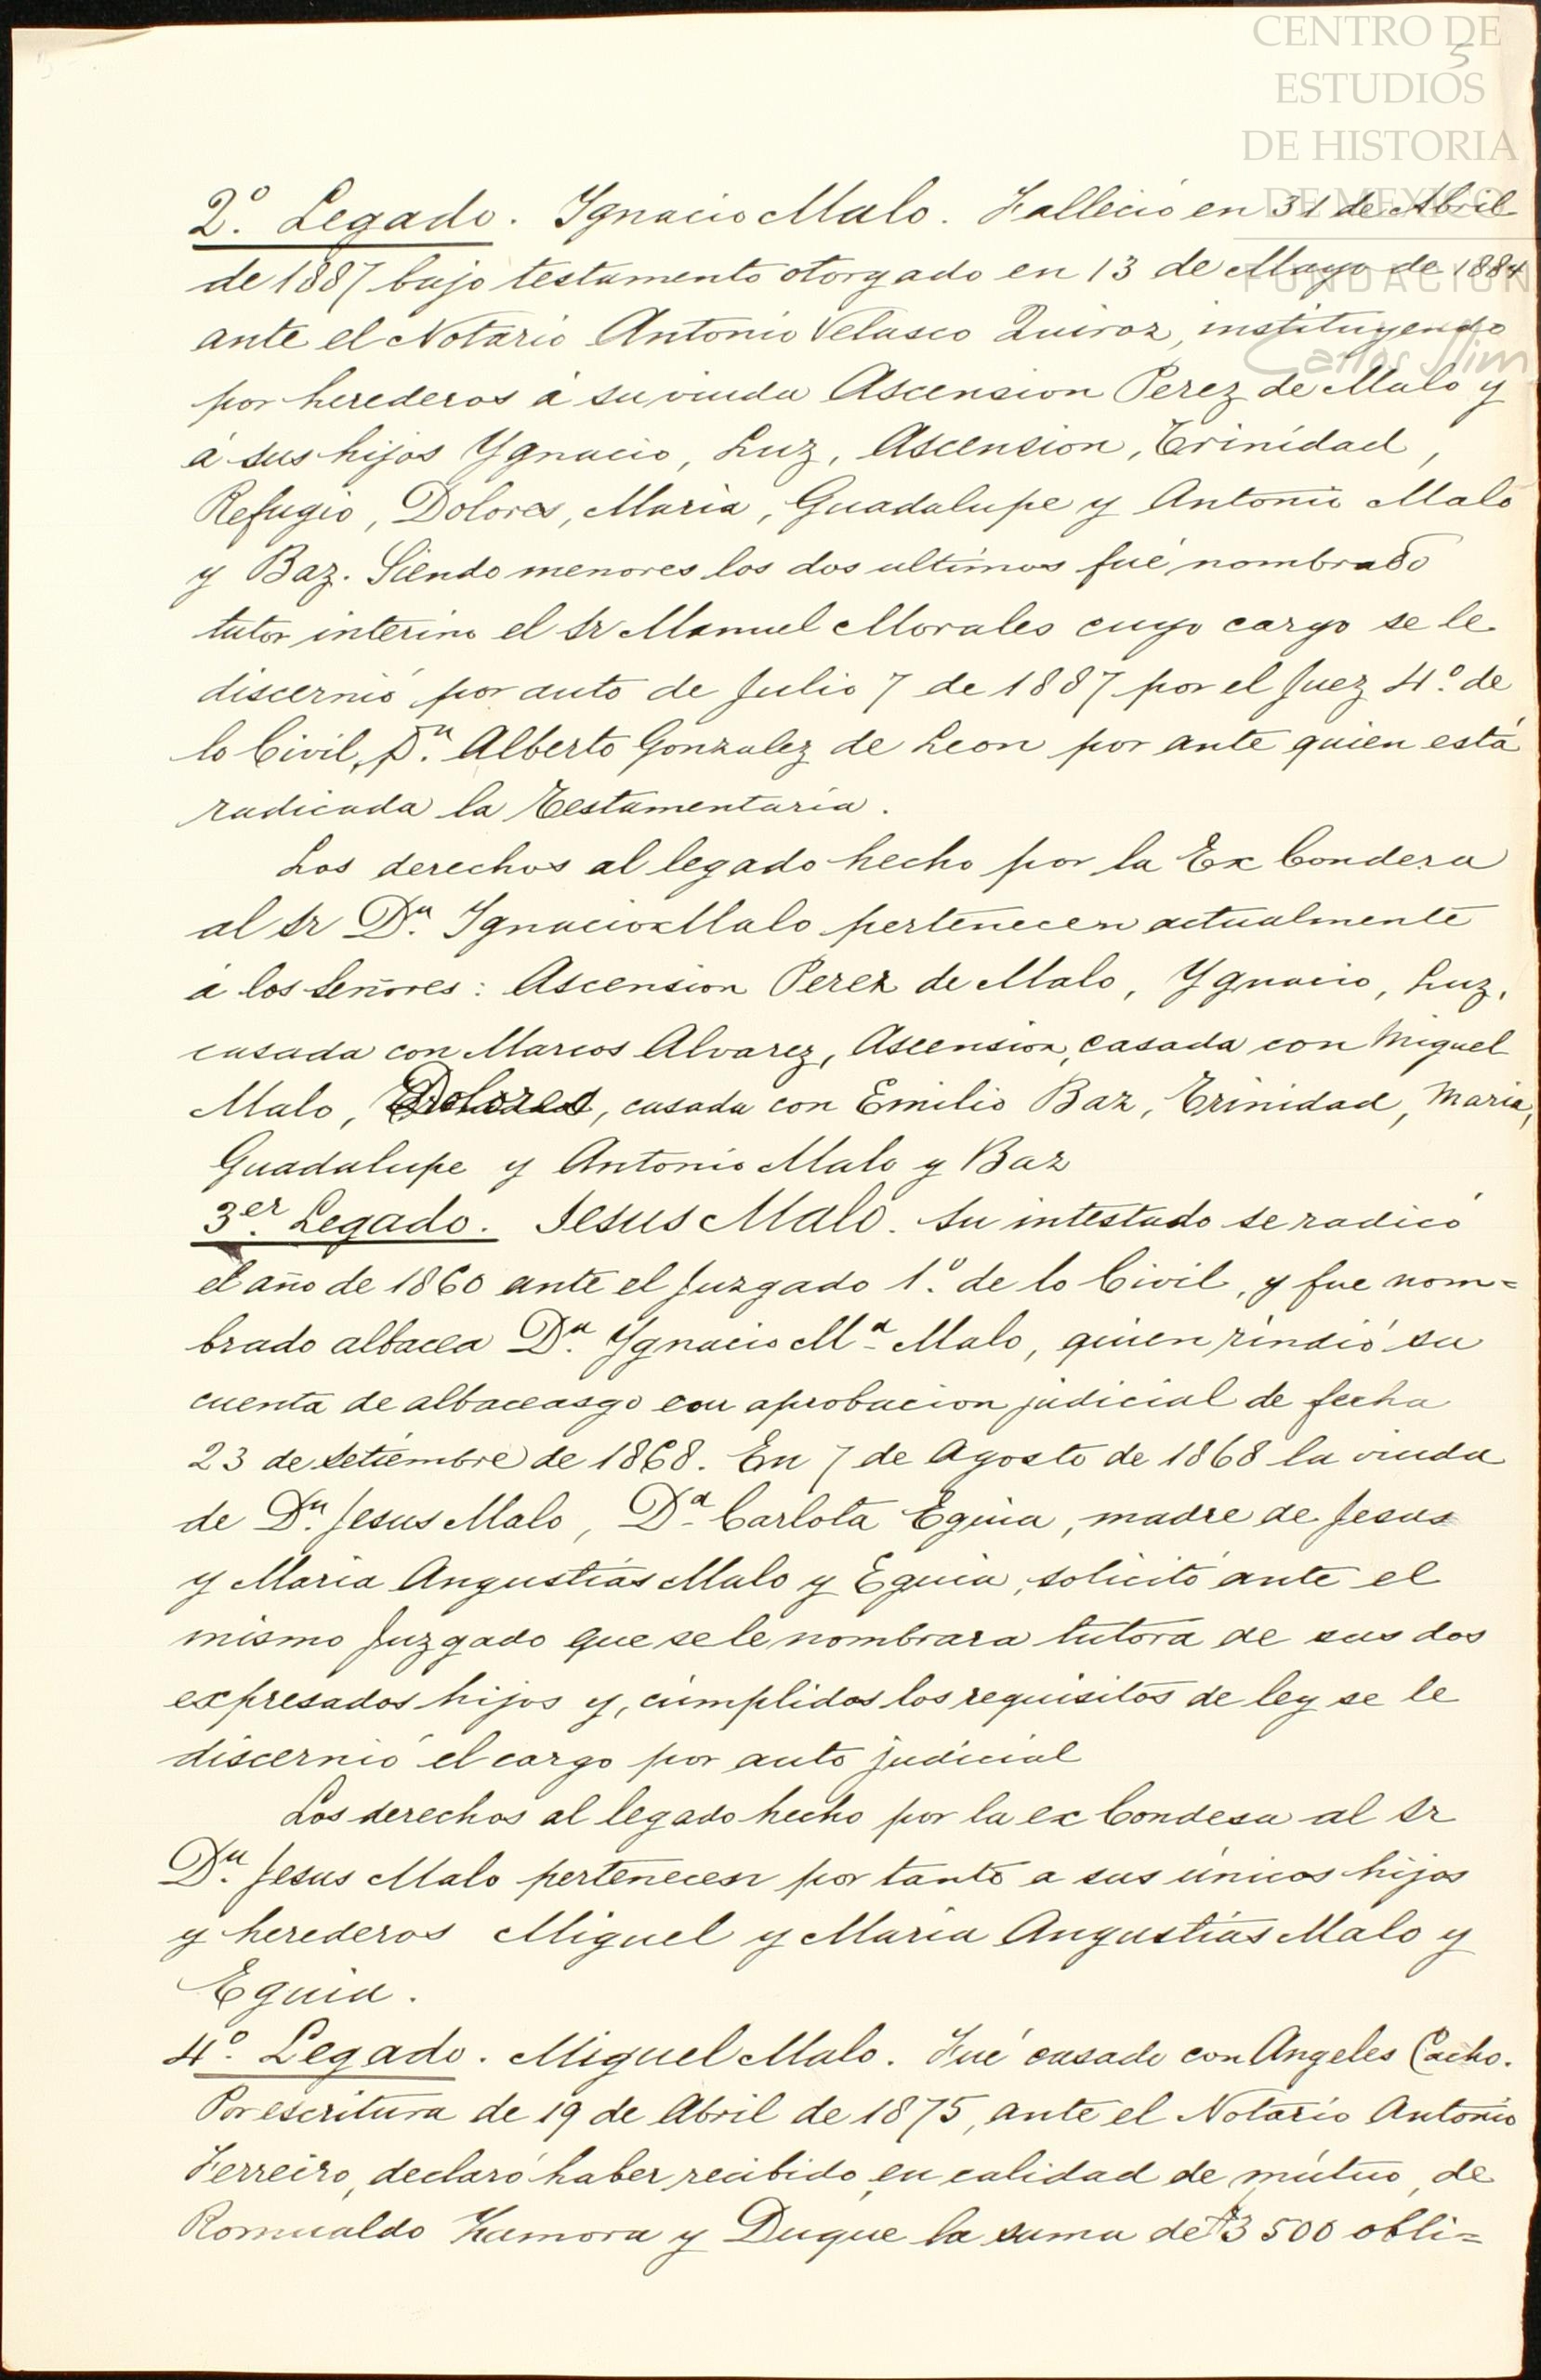 CENTRO DE
ESTUDIOS
DE HISTORIA
DE MEXICO
FUNDACIÓN
Carlos Slim
5
2º. Legado. Ignacio Malo. Falleció en 31 de Abril
de 1887 bajo testamento otorgado en 13 de Mayo de 1884
ante el Notario Antonio Velasco Quiroz, instituyendo
por herederos á su viuda Ascension Perez de Malo y
á sus hijos Ygnacio, Luz, Ascension, Trinidad,
Refugio, Dolores, Maria, Guadalupe y Antonio Malo
y Baz. Siendo menores los dos ultimos fué nombrado
tutor interino el Sr Manuel Morales cuyo cargo se le
discernió por auto de Julio 7 de 1887 por el Juez 4º. de
lo Civil, Dn. Alberto Gonzalez de Leon por ante quien está
radicada la Testamentaria.
Los derechos al legado hecho por la Ex Condesa
al Sr Dn. Ignacio Malo pertenecen actualmente
á los Señores: Ascension Perez de Malo, Ygnacio, Luz,
casada con Marcos Alvarez, Ascension, casada con Miguel
Malo, Dolores, casada con Emilio Baz, Trinidad, Maria,
Guadalupe y Antonio Malo y Baz
3er. Legado. Jesus Malo. Su intestado se radicó
el año de 1860 ante el Juzgado 1º. de lo Civil, y fue nom=
brado albacea Dn. Ygnacio Ma Malo, quien rindió su
cuenta de albaceasgo con aprobacion judicial de fecha
23 de Setiembre de 1868. En 7 de Agosto de 1868 la viuda
de Dn. Jesus Malo, Da Carlota Eguia, madre de Jesus
y Maria Angustias Malo y Eguia, solicitó ante el
mismo Juzgado que se le nombrara tutora de sus dos
expresados hijos y, cumplidos los requisitos de ley se le
discernió el cargo por auto judicial
Los derechos al legado hecho por la ex Condesa al Sr
Dn. Jesus Malo pertenecen por tanto a sus únicos hijos
y herederos Miguel y Maria Angustias Malo y
Eguia.
4º. Legado. Miguel Malo. Fué casado con Angeles Cacho.
Por escritura de 19 de Abril de 1875, ante el Notario Antonio
Ferreiro, declaró haber recibido en calidad de mútuo, de
Romualdo Zamora y Duque la suma de $3 500 obli=